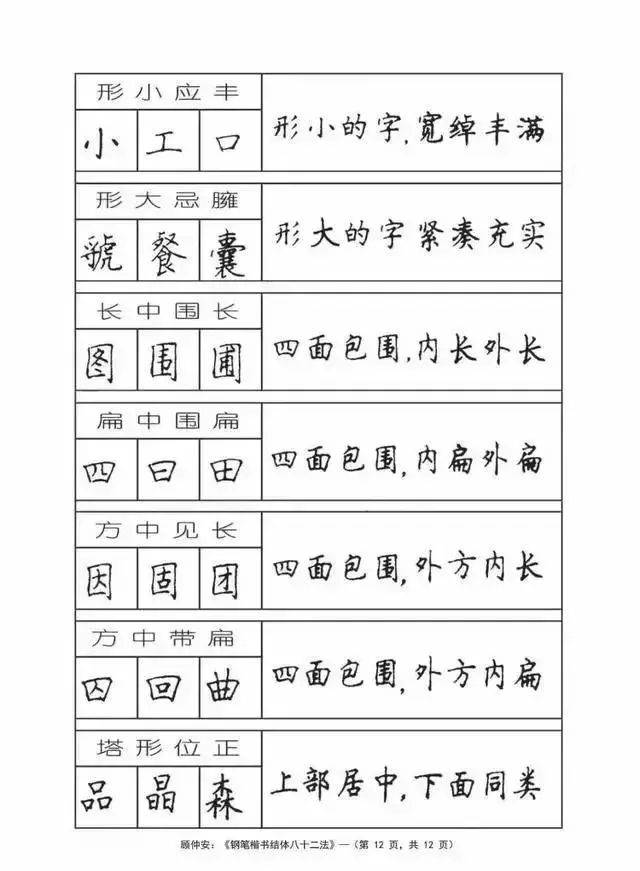 形小应丰
小 工 口
形小的字,宽绰丰满
形大忌臃
虢 餐 囊
形大的字紧凑充实
长中围长
图 围 圃
四面包围,内长外长
扁中围扁
四 曰 田
四面包围,内扁外扁
方中见长
因 固 团
四面包围,外方内长
方中带扁
囚 回 曲
四面包围,外方内扁
塔形位正
品 晶 森
上部居中,下面同类
顾仲安:《钢笔楷书结体八十二法》—(第 12 页, 共 12 页)